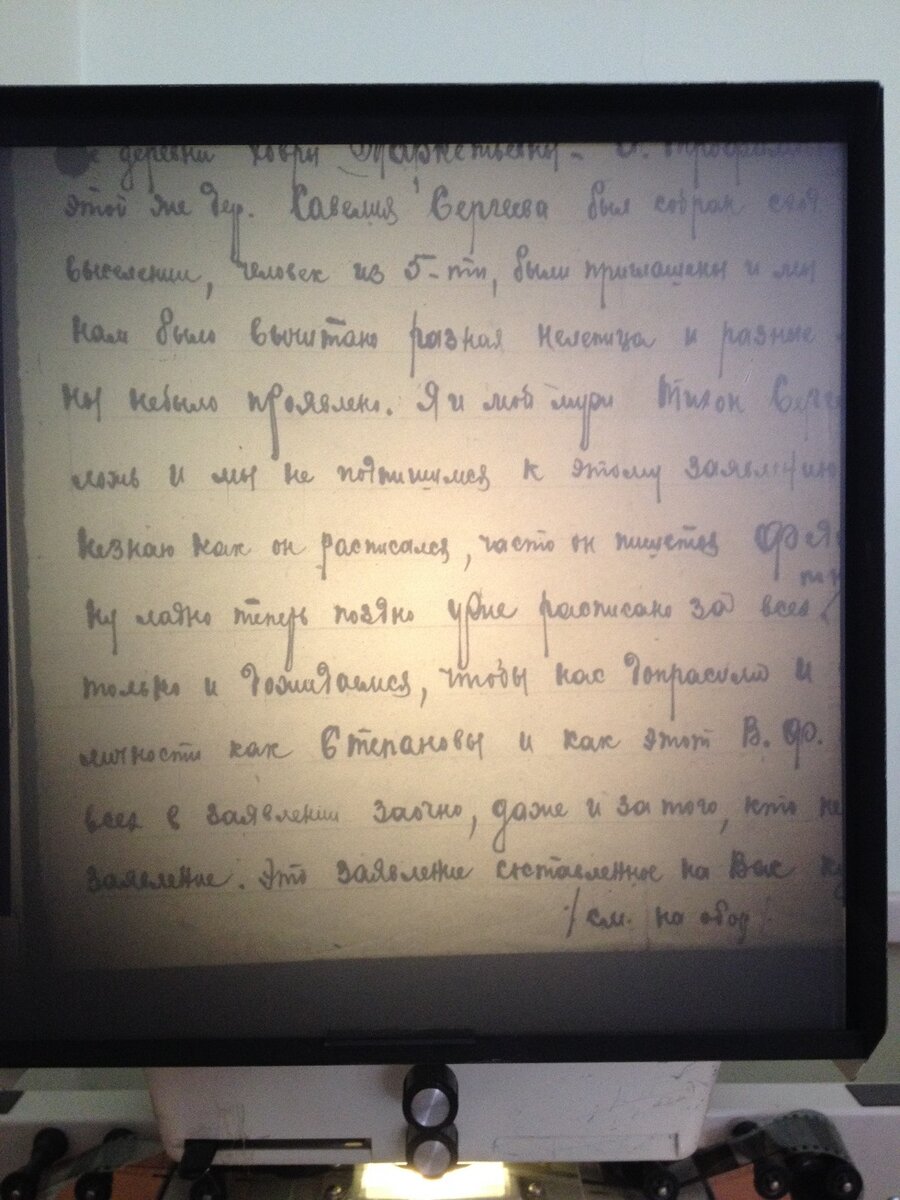 деревни
этой же дер. Савелия Сергеева был собран сход
выселении, человек из 5-ти, были приглашены и мы
нам было вычитано разная нелепица и разные
небыло проявлено. Я и мой муж Тихон Серге
ложь и мы не подпишимся к этому заявлению
незнаю как он расписался, часто он пишется
Ну ладно теперь поздно уже расписано за всех.
только и дожидаемся, чтобы нас допрасили и
личность как Степановы и как этот В. Ф.
всех в заявлении заочно, даже и за того, кто не
заявление. Это заявление составленное на Вас
/см. на обор/